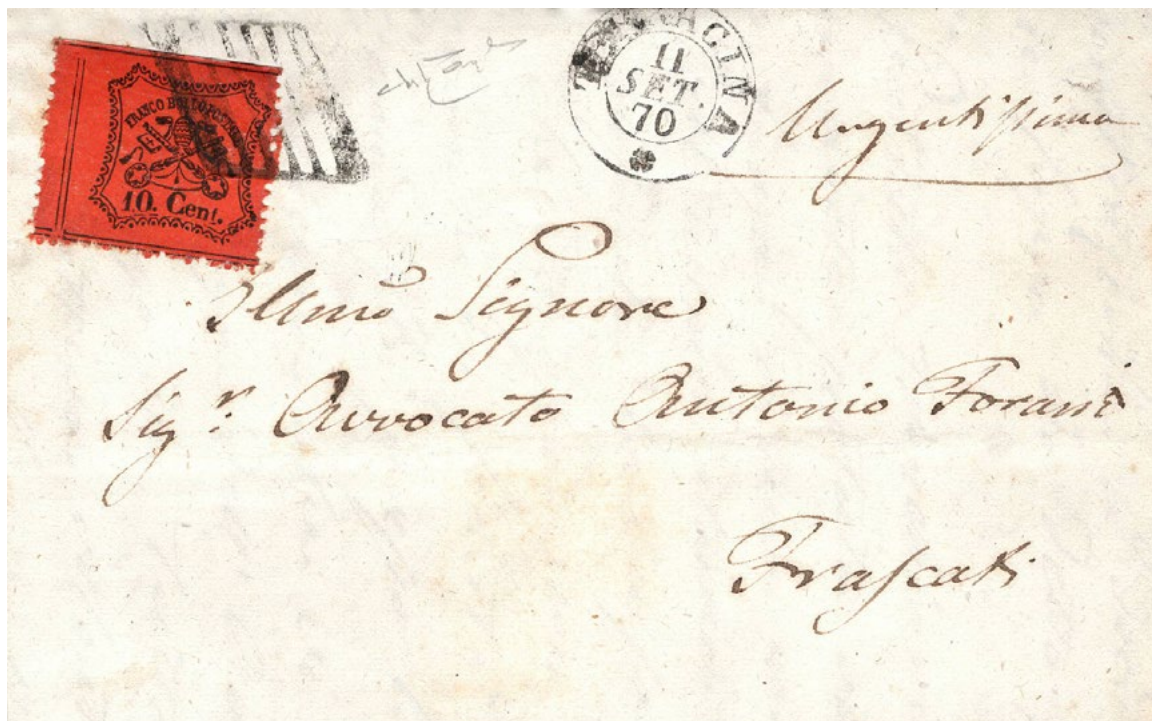 FRANCO BOLLO POSTALE
10. Cent.
TERRACINA
11
SET.
70
Urgentissima
Illmo Signore
Sigr. Avvocato Antonio
Frascati